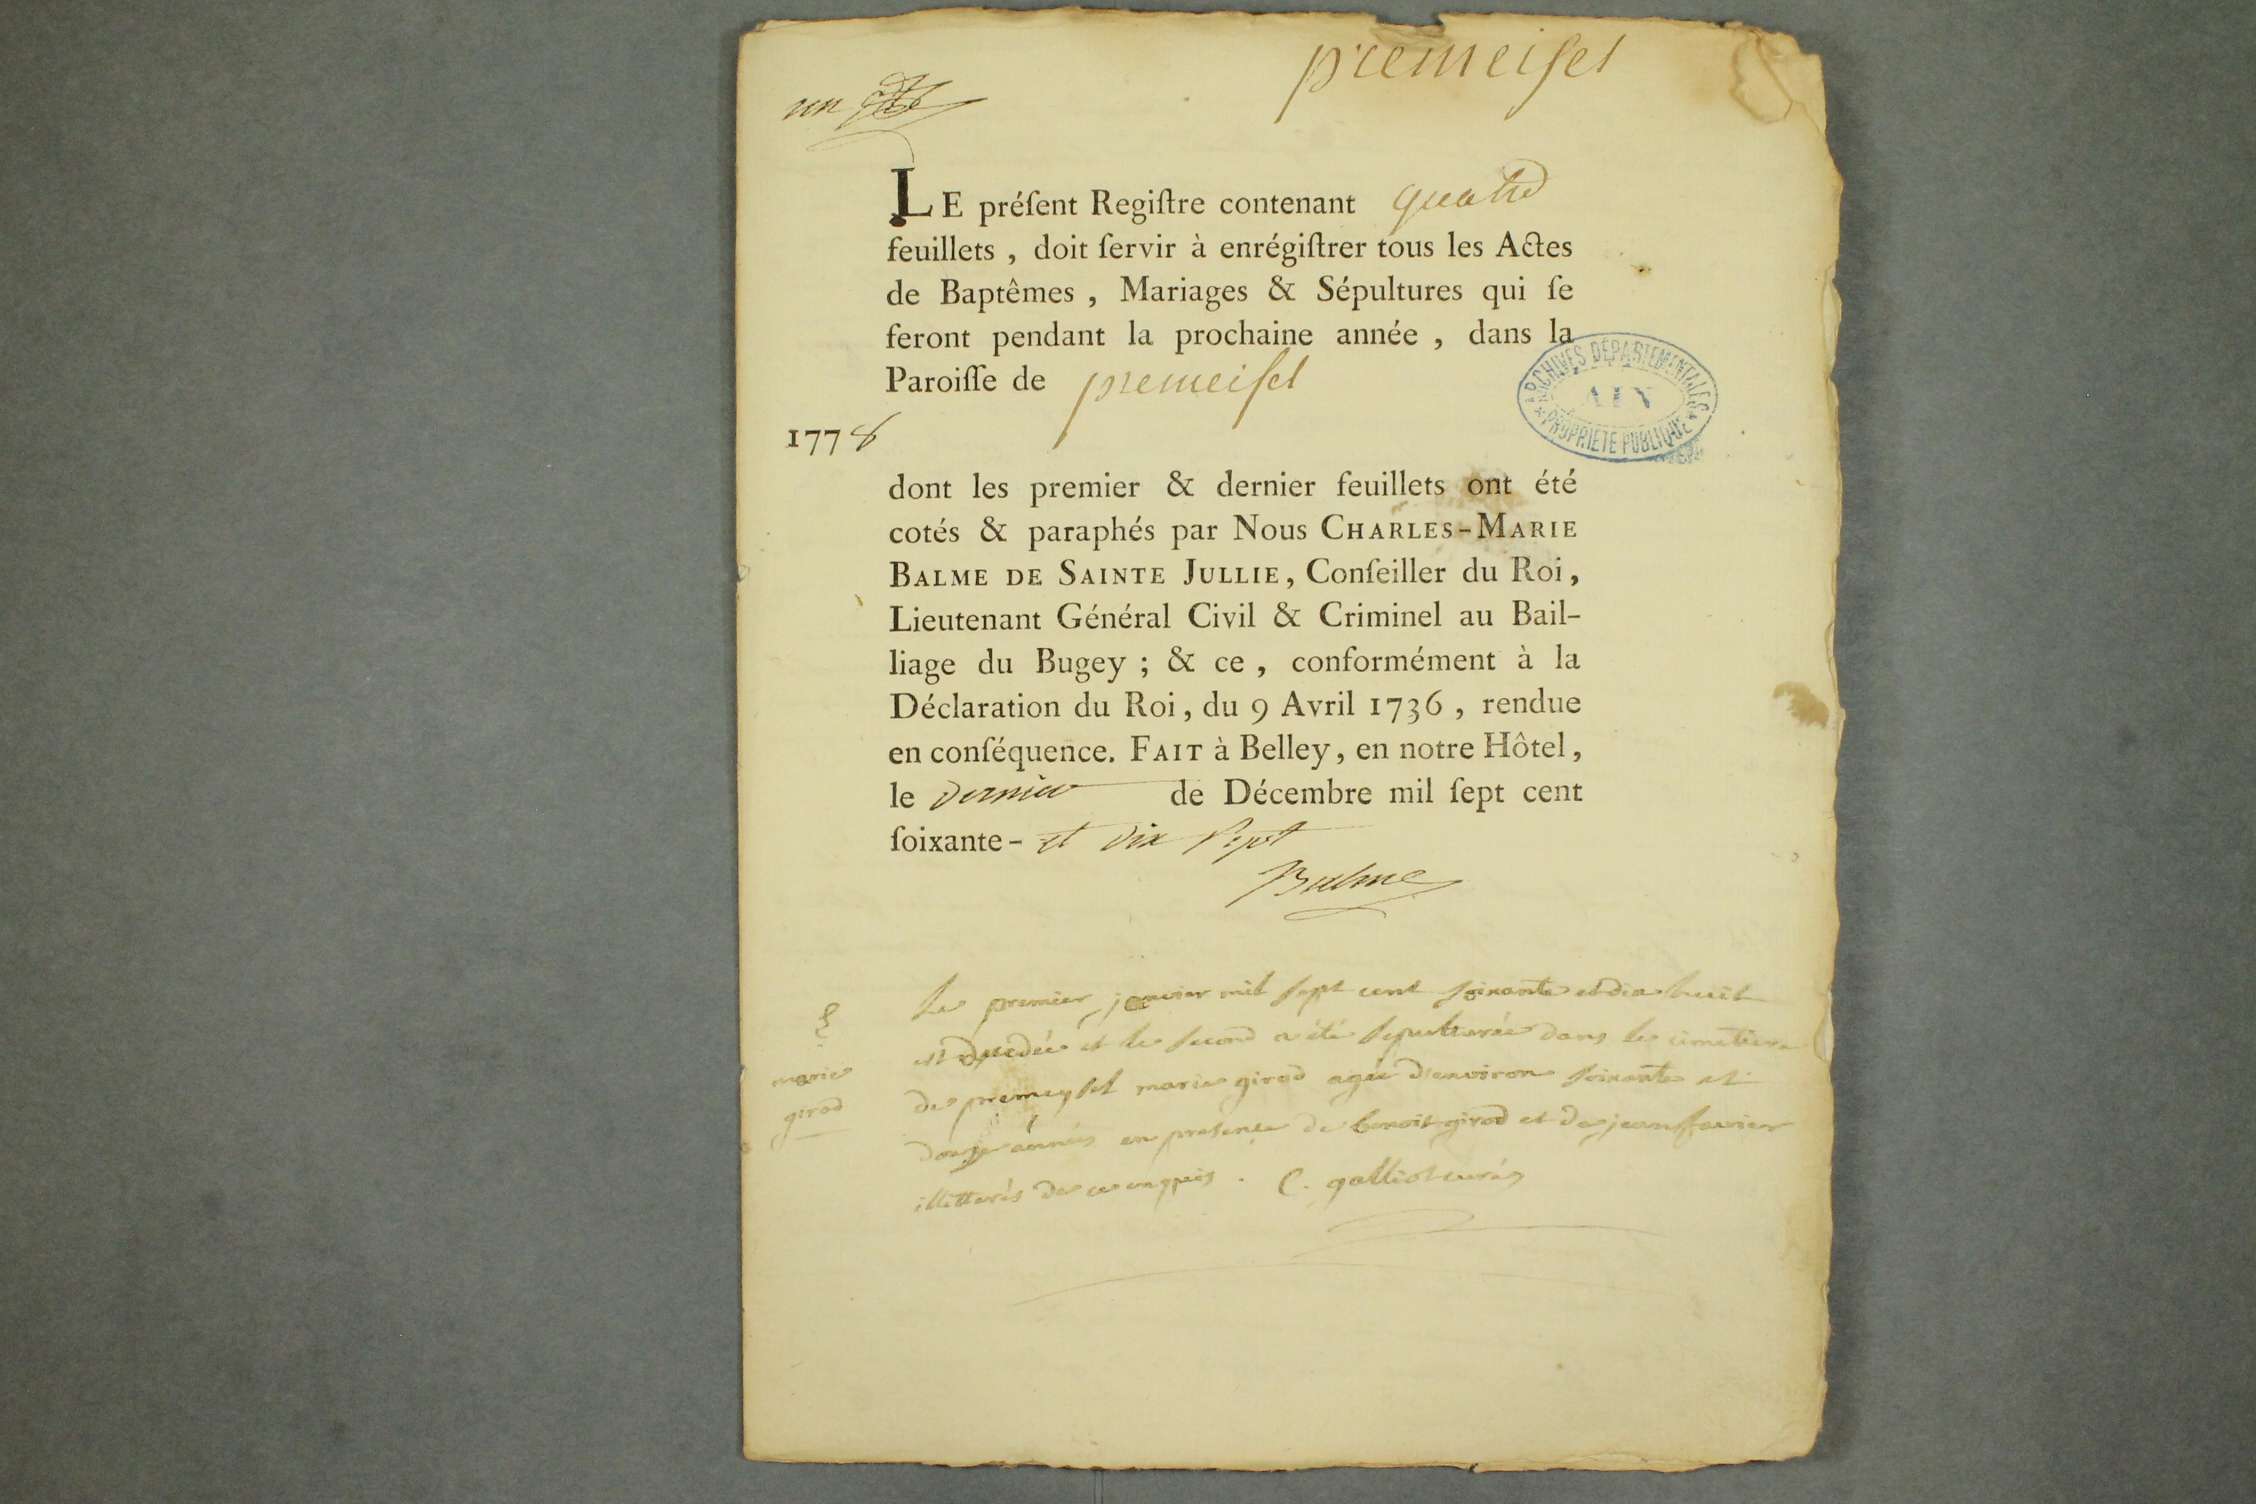 premeisel
un
LE préſent Regiſtre contenant quatre
feuillets , doit ſervir à enrégiſtrer tous les Actes
de Baptêmes , Mariages & Sépultures qui ſe
feront pendant la prochaine année , dans la
Paroiſſe de premeisel
ARCHIVES DÉPARTEMENTALES
AIN
PROPRIÉTÉ PUBLIQUE
1778
dont les premier & dernier feuillets ont été
cotés & paraphés par Nous CHARLES-MARIE
BALME DE SAINTE JULLIE, Conſeiller du Roi,
Lieutenant Général Civil & Criminel au Bail-
liage du Bugey ; & ce , conformément à la
Déclaration du Roi, du 9 Avril 1736 , rendue
en conſéquence. FAIT à Belley, en notre Hôtel,
le dernier de Décembre mil ſept cent
ſoixante- et dix sept
Balme
Le premier janvier mil sept cent soixante et dix huit
est decedée et le second a été sepulturée dans le cimetiere
de premeysel marie girod agée d'environ soixante et
douze années en presence de benoit girod et de jean favier
illitterés de ce enquis . C. galliot curé
S
marie
girod